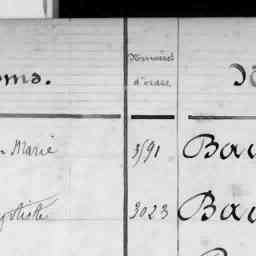 oms. Numéros d'ordre N
n Marie 3591 Bau
ptiste 3023 Bau